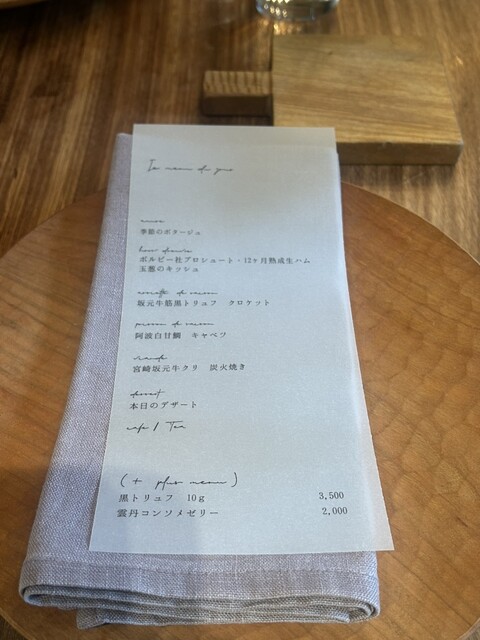 Le menu du jour
amuse
季節のポタージュ
hors d'œuvre
ボルピー社プロシュート・12ヶ月熟成生ハム
玉葱のキッシュ
assiette de saison
坂元牛筋黒トリュフ　クロケット
poisson de saison
阿波白甘鯛　キャベツ
viande
宮崎坂元牛クリ　炭火焼き
dessert
本日のデザート
cafe / Tea
(+ plus menu)
黒トリュフ　10g　3,500
雲丹コンソメゼリー　2,000